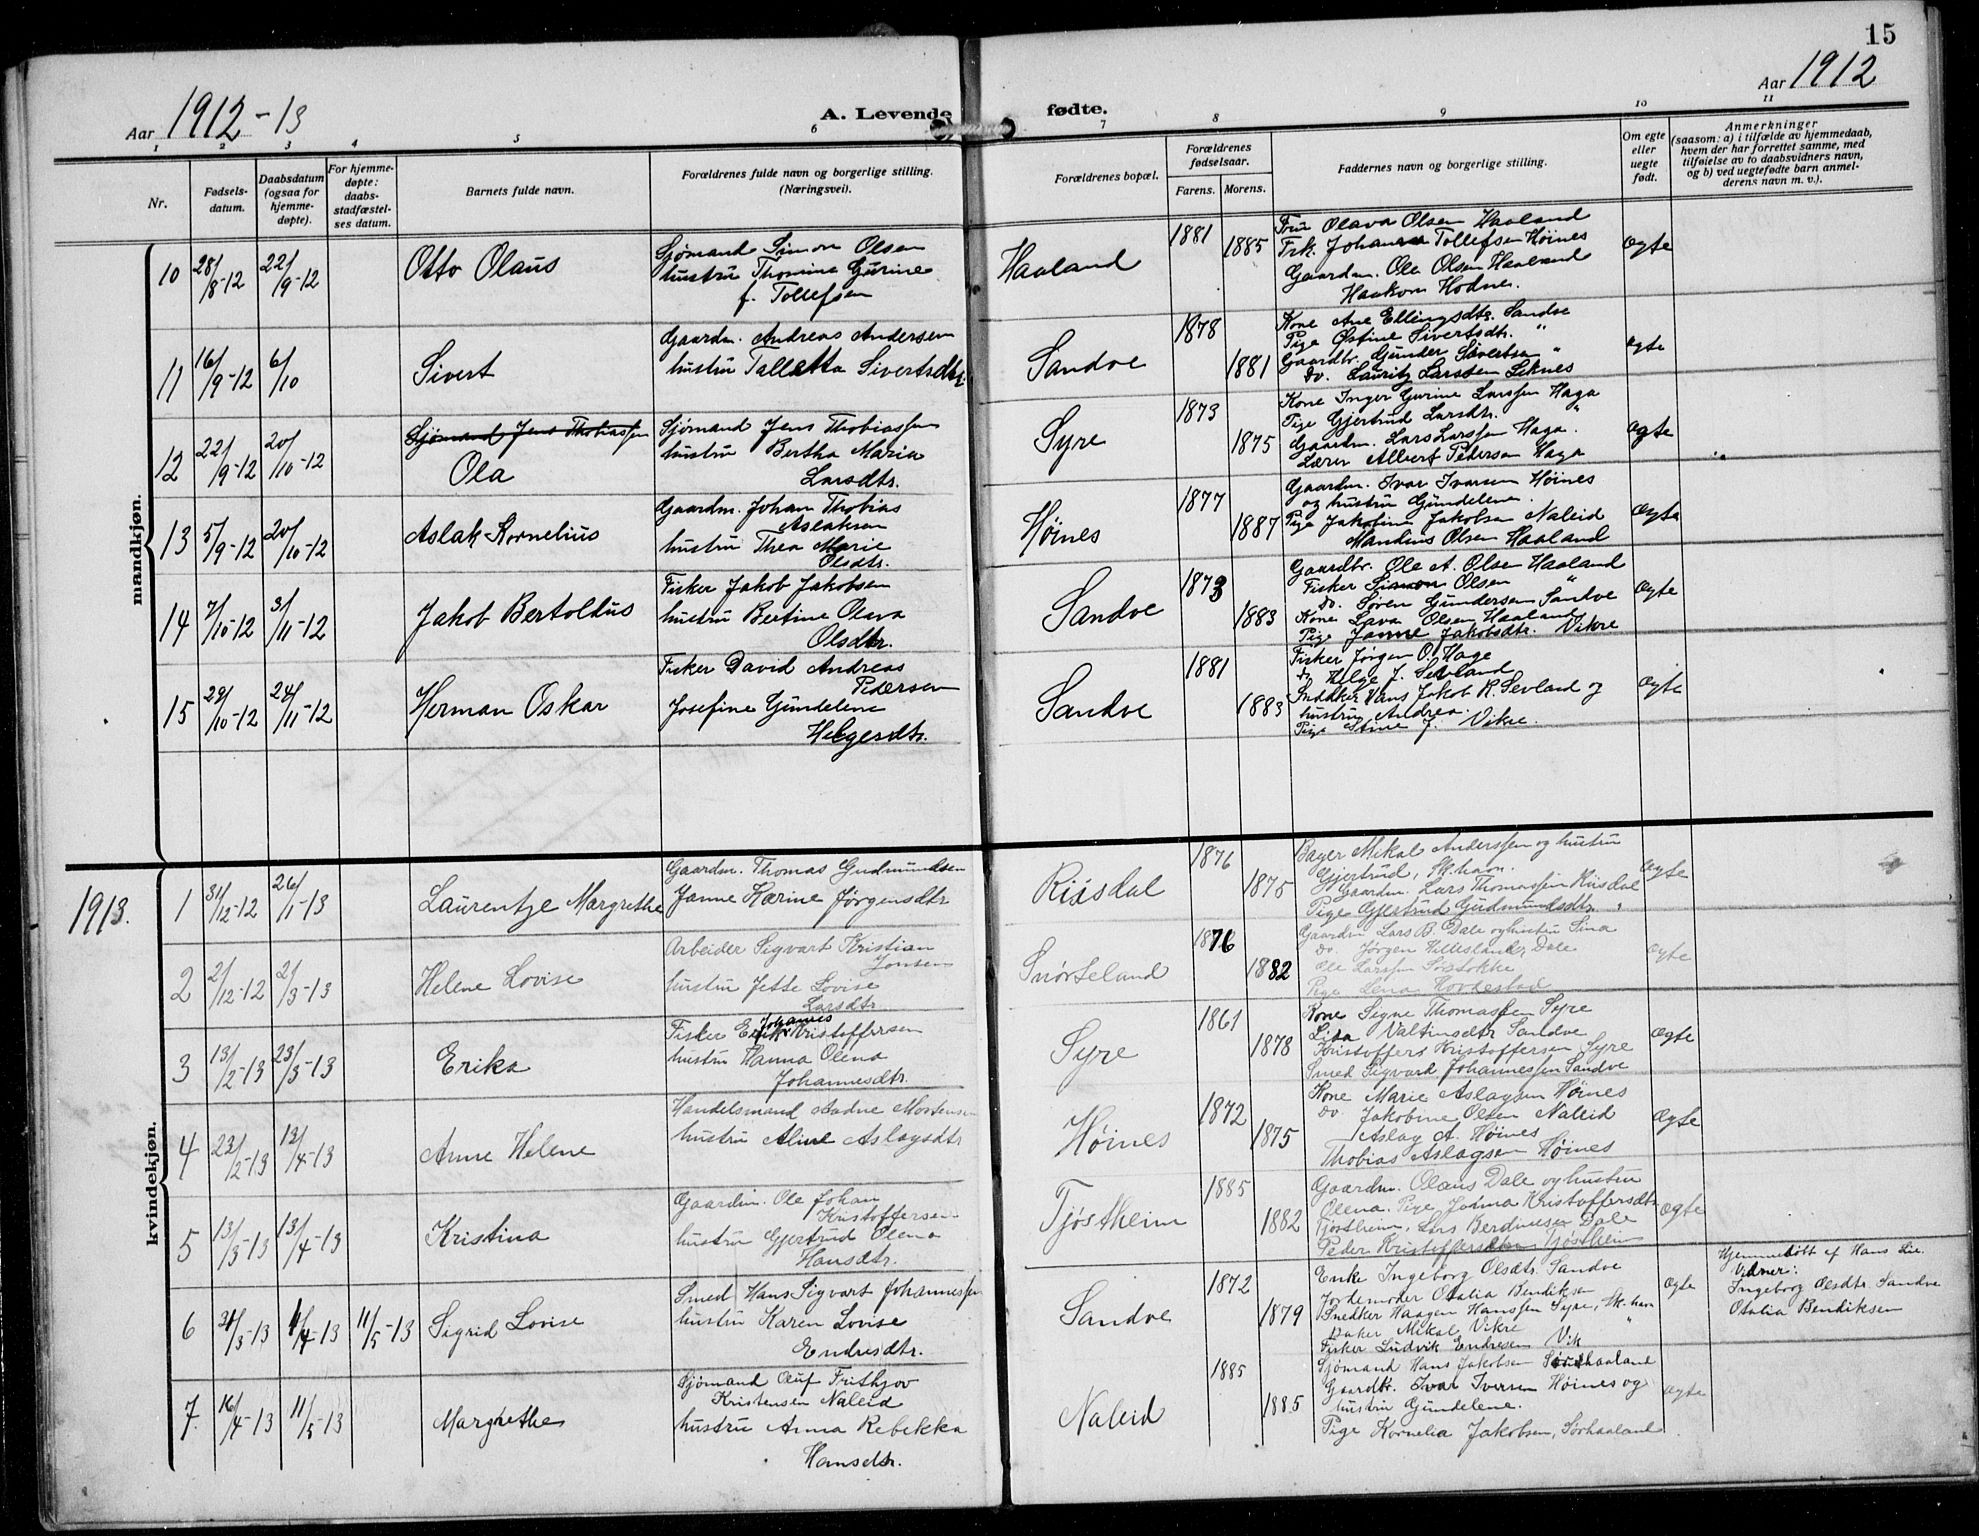 15
Aar 1912-13
A. Levende fødte.
Aar 1912
1 2 3 4 5 6 7 8 9 10 11
Nr.
Fødsels-
datum.
Daabsdatum
(ogsaa for
hjemme-
døpte).
For hjemme-
døpte:
daabs-
stadfæstel-
ses datum.
Barnets fulde navn.
Forældrenes fulde navn og borgerlige stilling.
(Næringsvei).
Forældrenes bopæl.
Forældrenes
fødselsaar.
Farens. Morens.
Faddernes navn og borgerlige stilling.
Om egte
eller
uegte
født.
Anmerkninger
(saasom: a) i tilfælde av hjemmedaab,
hvem der har forrettet samme, med
tilføielse av to daabsvidners navn,
og b) ved uegtefødte barn anmel-
derens navn m. v.).
mandkjøn.
10 28/8-12 22/9-12 Otto Olaus
Sjømand Simon Olsen
hustru Thomine Gurine
f. Tollefsen
Haaland 1881 1885
Frue Olava Olsen Haaland
Frk. Johanna Tollefsen Høines
Gaardm. Ole Olsen Haaland
Haakon Hodne.
Ægte
11 16/9-12 6/10 Sivert
Gaardm. Andreas Andersen
hustru Talletta Sivertsdtr.
Sandve 1878 1881
Kone Ane Ellingsdtr. Sandve
Pige Østine Sivertsdtr. "
Gaardbr. Gunder Sivertsen "
do. Lauritz Larssen
Ægte
12 22/9-12 20/10-12 Sjömand Jens Thobiassen
Ola
Sjømand Jens Thobiassen
hustru Bertha Maria
Larsdtr.
Syre 1873 1875
Kone Inger Gurine Larssen Haga
Pige Gjertrud Larsdtr. "
Gaardm. Lars Larssen Haga.
Lærer Albert Petersen Haga
Ægte
13 5/9-12 20/10-12 Aslak Kornelius
Gaardm. Johan Thobias
Aslaksen
hustru Thea Marie
Olsdtr.
Høines 1877 1887
Gaardm. Ivar Ivarsen Høines
og hustru Gundelene.
Pige Jakobine Jakobsen Naleid
Mandius Olsen Haaland
Ægte
14 7/10-12 3/11-12 Jakob Bertoldus
Fisker Jakob Jakobsen
hustru Bertine Olava
Olsdtr.
Sandve 1873 1883
Gaardbr. Ole A. Olsen Haaland
Fisker Simon Olsen "
do. Søren Gundersen Sandve
Kone Lava Olsen Haaland
Pige Janne Jakobsdtr. Vikre
Ægte
15 29/10-12 24/11-12 Herman Oskar
Fisker David Andreas
Pedersen
Josefine Gundelene
Helgesdtr.
Sandve 1881 1883
Fisker Jørgen O. Hage
do Helge J. Sevland
Snedker Hans Jakob K. Sevland og
hustru Andrea.
Pige Stine J. Vikre.
Ægte
1913.
kvindekjøn.
1 31/12-12 26/1-13 Laurentze Margrethe
Gaardm. Thomas Gudmundsen
Janne Karine Jørgensdtr
Riisdal 1876 1875
Bager Mikal Anderssen og hustru
Gjertrud, Sk.havn.
Gaardm. Lars Thomassen Riisdal
Pige Gjertrud Gudmundsdtr. "
Ægte
2 2/12-12 2/3-13 Helene Lovise
Arbeider Sigvart Kristian
Jonsen
hustru Jette Lovise
Larsdtr.
Snørteland 1876 1882
Gaardm Lars B. Dale og hustru Sina
do. Jørgen Hillesland, Dale
Ole Larssen Sørstokke
Pige Lena Hovdestad
Ægte
3 13/2-13 23/3-13 Erika
Johannes
Fisker Erik Kristoffersen
hustru Hanna Olena
Johannesdtr.
Syre 1861 1878
Kone Signe Thomassen Syre
Lisa Valtinsdtr Sandve
Kristoffers Kristoffersen Syre
Smed Sigvard Johannessen Sandve
Ægte
4 23/2-13 13/4-13 Anne Helene
Handelsmand Aadne Mortensen
hustru Aline Aslagsdtr
Høines 1872 1875
Kone Marie Aslagsen Høines
do. Jakobine Olsen Naleid
Aslag A. Høines
Thobias Aslagsen Høines
Ægte
5 13/3-13 13/4-13 Kristina
Gaardm. Ole Johan
Kristoffersen
hustru Gjertrud Olena
Hansdtr.
Tjøstheim 1885 1882
Gaardm. Olaus Dale og hustru
Olena. Pige Janna Kristoffersdtr
Tjøstheim, Lars Berdinesen Dale
Peder Kristoffersen Tjøstheim
Ægte
6 31/3-13 4/4-13 11/5-13 Sigrid Lovise
Smed Hans Sigvart Johannessen
hustru Karen Lovise
Endresdtr.
Sandve 1872 1879
Enke Ingeborg Olsdtr. Sandve
Jordemoder Otalia Bendiksen "
Snedker Haagen Hanssen Syre, Sk.havn
Baker Mikal Vikre "
Fisker Ludvik Endresen Vik
Ægte
Hjemmedøbt af Hans Lie.
Vidner:
Ingeborg Olsdtr. Sandve
Otalia Bendiksen
7. 16/4-13 11/5-13 Margrethe
Sjømand Oluf Frithjov
Kristensen Naleid
hustru Anna Rebekka
Hansdtr.
Naleid 1885 1885
Sjømand Hans Jakobsen Sørhaaland
Gaardbr. Ivar Iversen Høines og
hustru Gundelene.
Pige Kornelia Jakobsen, Sørhaaland
Ægte